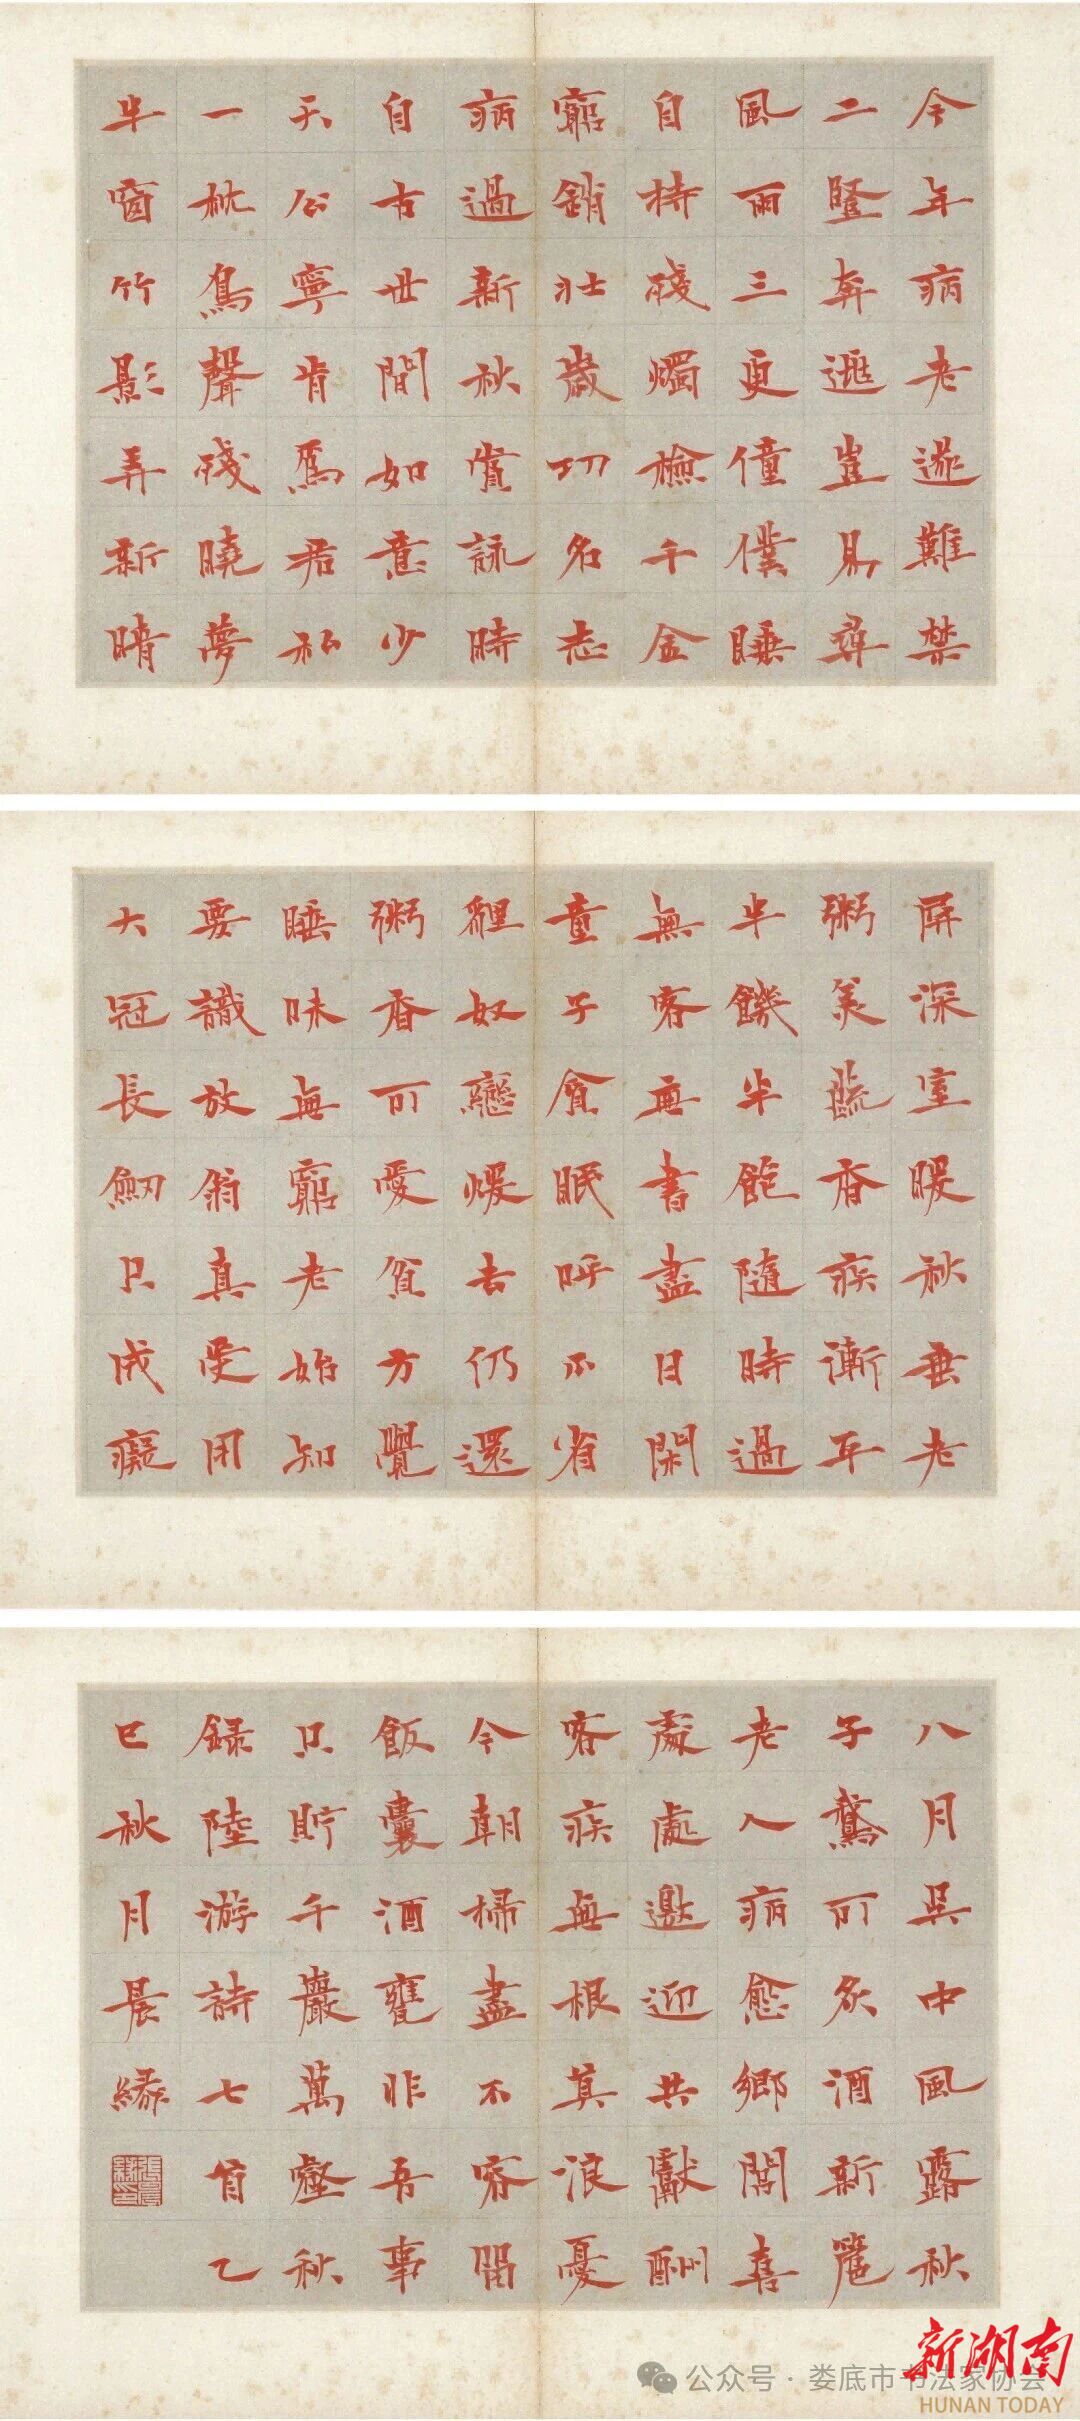 今年病老遂難禁
二豎奔逃豈易尋
風雨三更僮僕睡
自持殘燭檢千金
窮銷壯歲功名志
病過新秋賞詠時
自古世間如意少
天公寧肯為君私
一枕鳥聲殘曉夢
半窗竹影弄新晴
屏深室暖秋垂老
粥美蔬香疾漸平
半饑半飽隨時過
無客無書盡日閑
童子貪眠呼不省
貍奴戀煖去仍還
粥香可愛貧方覺
睡味無窮老始知
要識放翁真受用
大冠長劒只成癡
八月吳中風露秋
子鵞可炙酒新篘
老人病愈鄉閭喜
處處邀迎共獻酬
客疾無根莫浪憂
今朝掃盡不容留
飯囊酒甕非吾事
只貯千巖萬壑秋
錄陸游詩七首乙
巳秋月晨
公众号·娄底市书法家协会
新湖南
HUNAN TODAY